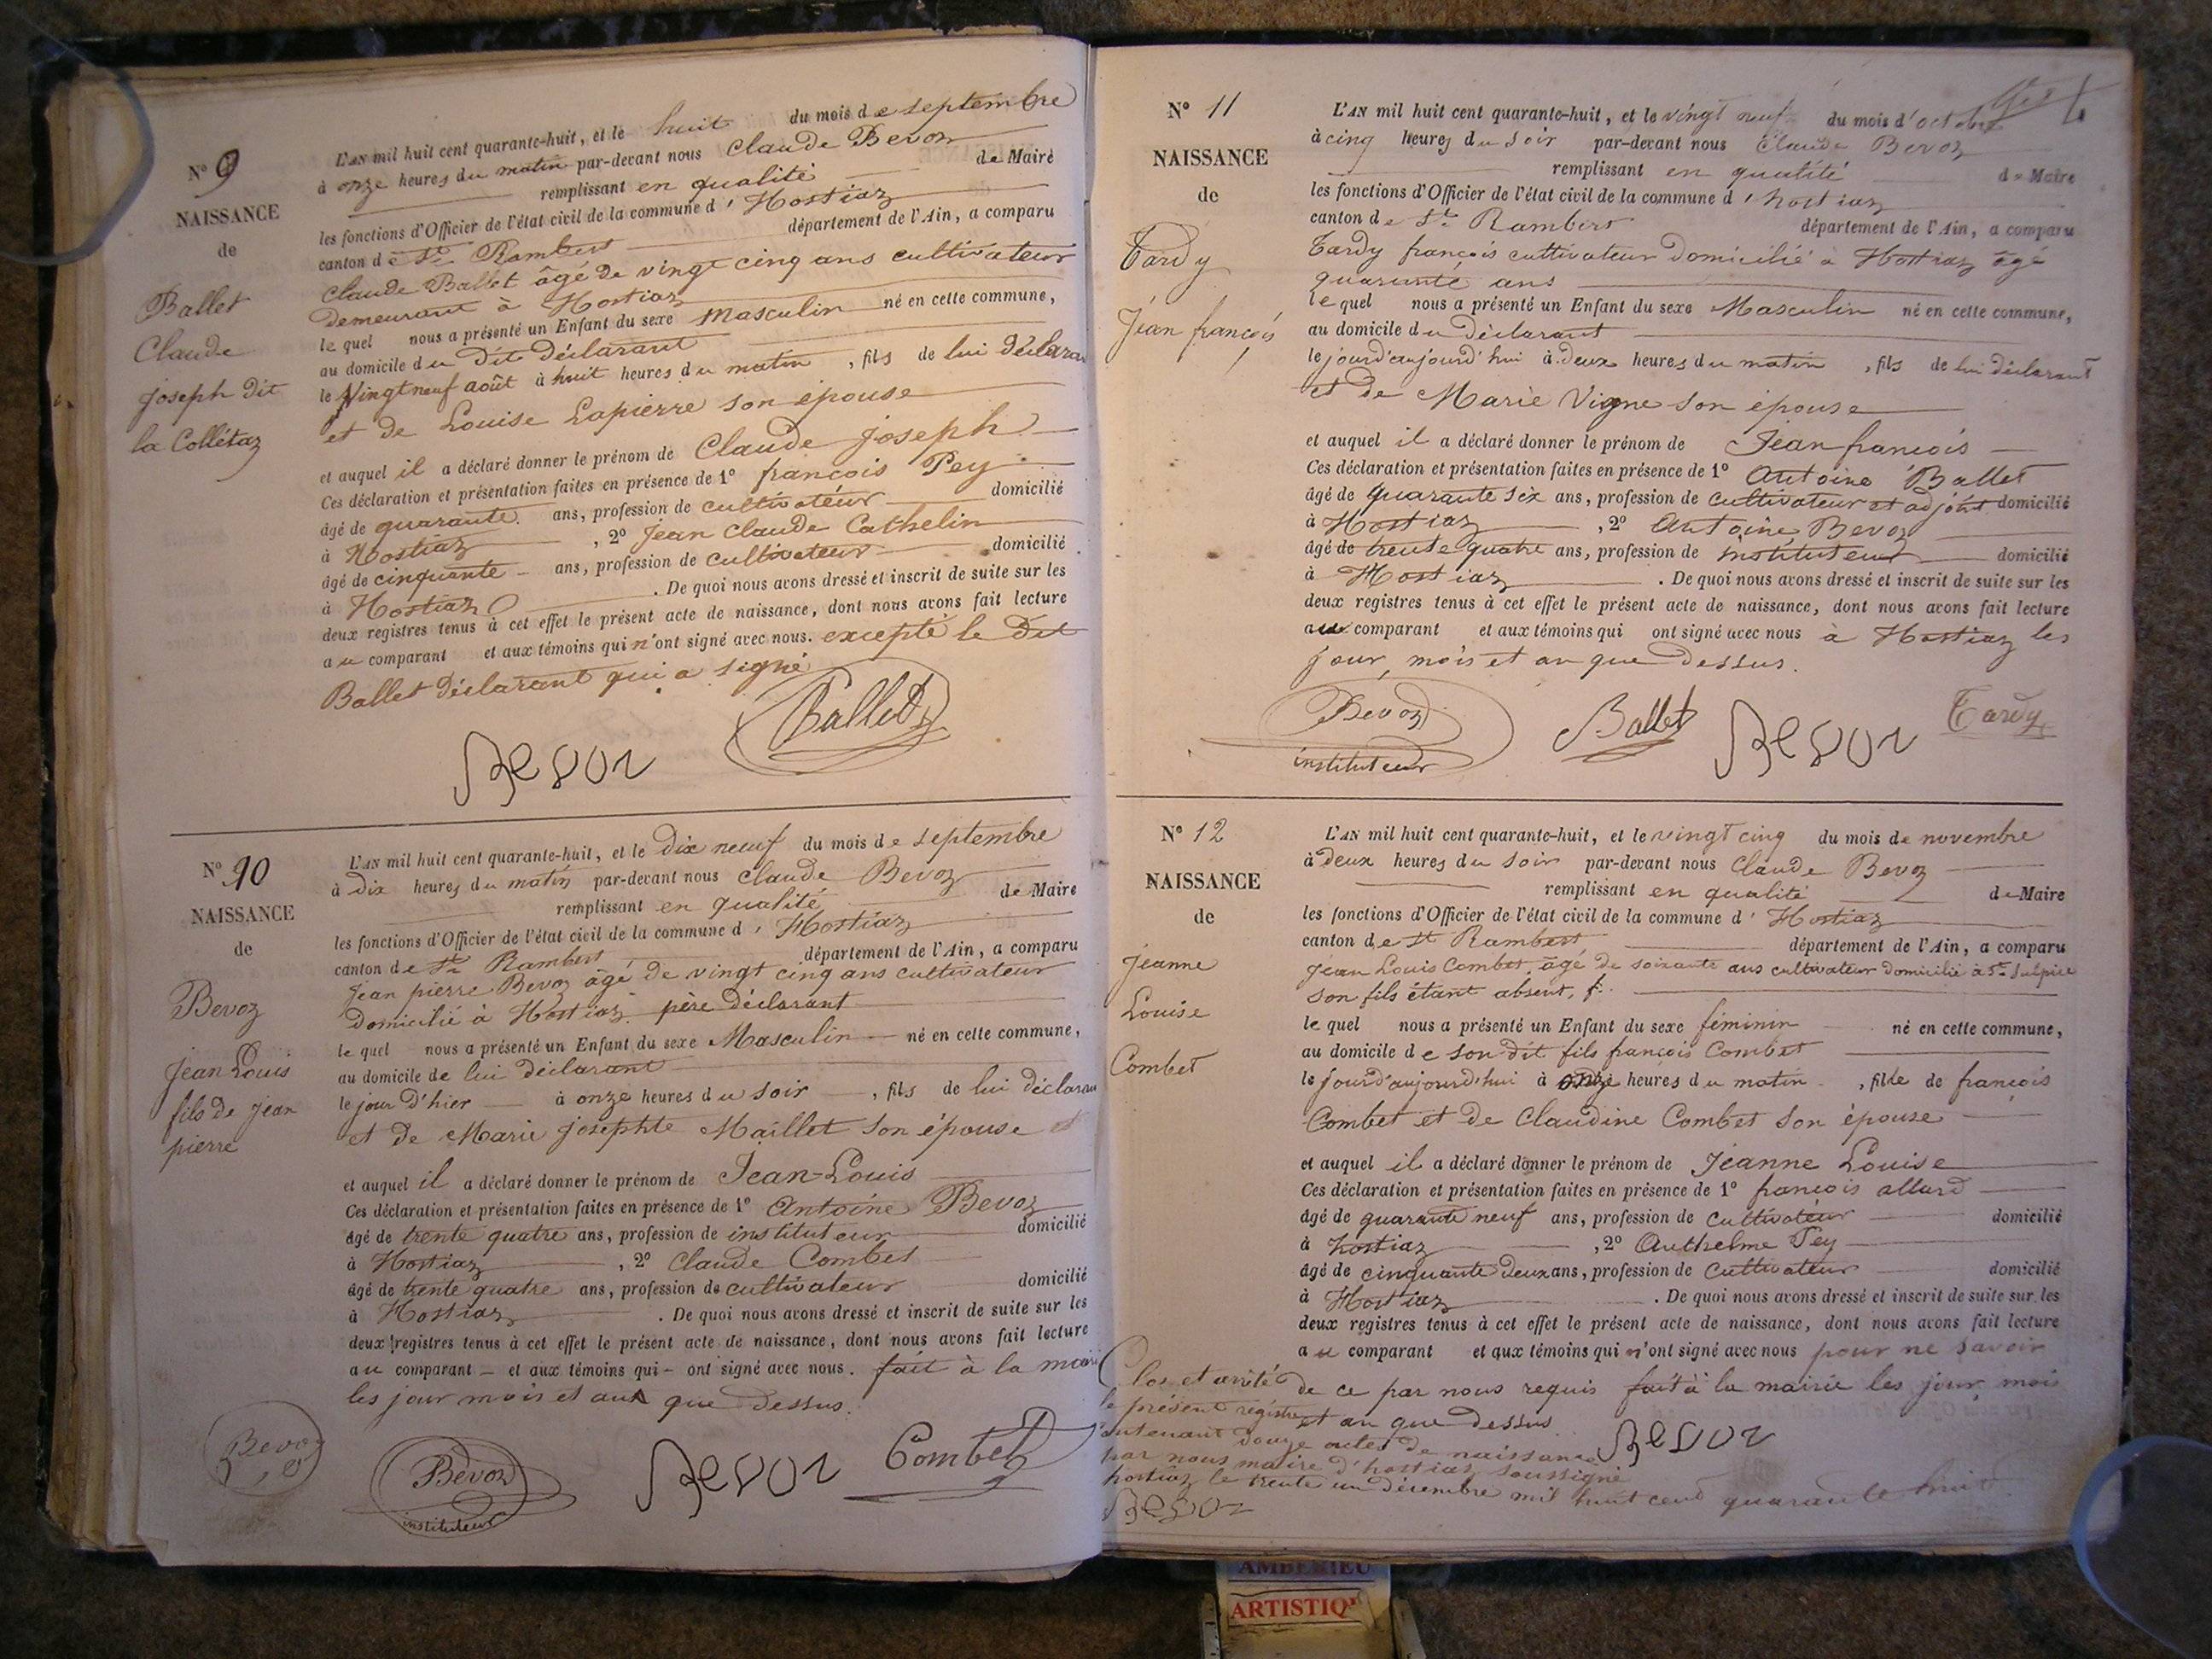 N° 9
NAISSANCE
de
Ballet
Claude
joseph dit
la Collétaz
L'AN mil huit cent quarante-huit, et le huit du mois de septembre
à onze heures du matin par-devant nous Claude Bevoz
remplissant en qualité de Maire
les fonctions d'Officier de l'état civil de la commune d'Hostiaz
canton de St Rambert département de l'Ain, a comparu
Claude Ballet âgé de vingt cinq ans cultivateur
demeurant à Hostiaz
le quel nous a présenté un Enfant du sexe Masculin né en cette commune,
au domicile du dit déclarant
le Vingt neuf août à huit heures du matin, fils de lui déclarant
et de Louise Lapierre son épouse
et auquel il a déclaré donner le prénom de Claude joseph
Ces déclaration et présentation faites en présence de 1° françois Pey
âgé de quarante ans, profession de cultivateur domicilié
à Hostiaz, 2° Jean Claude Cathelin
âgé de cinquante ans, profession de cultivateur domicilié
à Hostiaz. De quoi nous avons dressé et inscrit de suite sur les
deux registres tenus à cet effet le présent acte de naissance, dont nous avons fait lecture
au comparant et aux témoins qui n'ont signé avec nous. excepté le dit
Ballet déclarant qui a signé
Ballet
Bevoz
N° 10
NAISSANCE
de
Bevoz
Jean Louis
fils de jean
pierre
L'AN mil huit cent quarante-huit, et le dix neuf du mois de septembre
à dix heures du matin par-devant nous Claude Bevoz
remplissant en qualité de Maire
les fonctions d'Officier de l'état civil de la commune d'Hostiaz
canton de St Rambert département de l'Ain, a comparu
Jean pierre Bevoz âgé de vingt cinq ans cultivateur
domicilié à Hostiaz père déclarant
le quel nous a présenté un Enfant du sexe Masculin né en cette commune,
au domicile de lui déclarant
le jour d'hier à onze heures du soir, fils de lui déclarant
et de Marie josephte Maillet son épouse
et auquel il a déclaré donner le prénom de Jean-Louis
Ces déclaration et présentation faites en présence de 1° Antoine Bevoz
âgé de trente quatre ans, profession de instituteur domicilié
à Hostiaz, 2° Claude Combet
âgé de trente quatre ans, profession de cultivateur domicilié
à Hostiaz. De quoi nous avons dressé et inscrit de suite sur les
deux registres tenus à cet effet le présent acte de naissance, dont nous avons fait lecture
au comparant et aux témoins qui ont signé avec nous. fait à la mairie
les jour mois et an que dessus.
Bevoz
Bevoz
instituteur
Bevoz
Combet
N° 11
NAISSANCE
de
Tardy
Jean françois
L'AN mil huit cent quarante-huit, et le vingt neuf du mois d'octobre
à cinq heures du soir par-devant nous Claude Bevoz
remplissant en qualité de Maire
les fonctions d'Officier de l'état civil de la commune d'hostiaz
canton de St Rambert département de l'Ain, a comparu
Tardy françois cultivateur domicilié à Hostiaz âgé
quarante ans
le quel nous a présenté un Enfant du sexe Masculin né en cette commune,
au domicile du déclarant
le jourd'aujourd'hui à deux heures du matin, fils de lui déclarant
et de Marie Vigne son épouse
et auquel il a déclaré donner le prénom de Jean françois
Ces déclaration et présentation faites en présence de 1° Antoine Ballet
âgé de quarante six ans, profession de cultivateur et adjoint domicilié
à Hostiaz, 2° Antoine Bevoz
âgé de trente quatre ans, profession de instituteur domicilié
à Hostiaz. De quoi nous avons dressé et inscrit de suite sur les
deux registres tenus à cet effet le présent acte de naissance, dont nous avons fait lecture
au comparant et aux témoins qui ont signé avec nous à Hostiaz les
jour, mois et an que dessus.
Bevoz
instituteur
Ballet
Bevoz
Tardy
N° 12
NAISSANCE
de
Jeanne
Louise
Combet
L'AN mil huit cent quarante-huit, et le vingt cinq du mois de novembre
à deux heures du soir par-devant nous Claude Bevoz
remplissant en qualité de Maire
les fonctions d'Officier de l'état civil de la commune d'Hostiaz
canton de St Rambert département de l'Ain, a comparu
Jean Louis Combet, âgé de soixante ans cultivateur domicilié à St Sulpice
son fils étant absent,
le quel nous a présenté un Enfant du sexe féminin né en cette commune,
au domicile de son dit fils françois Combet
le jourd'aujourd'hui à onze heures du matin, fille de françois
Combet et de Claudine Combet son épouse
et auquel il a déclaré donner le prénom de Jeanne Louise
Ces déclaration et présentation faites en présence de 1° françois allard
âgé de quarante neuf ans, profession de cultivateur domicilié
à hostiaz, 2° Anthelme Pey
âgé de cinquante deux ans, profession de Cultivateur domicilié
à Hostiaz. De quoi nous avons dressé et inscrit de suite sur les
deux registres tenus à cet effet le présent acte de naissance, dont nous avons fait lecture
au comparant et aux témoins qui n'ont signé avec nous pour ne savoir
de ce par nous requis fait à la mairie les jour, mois
et an que dessus
Bevoz
Clos et arrêté
le présent registre
contenant douze actes de naissance
par nous maire d'hostiaz soussigné
hostiaz le trente un décembre mil huit cent quarante huit.
Bevoz
AMBERIEU
ARTISTIQ